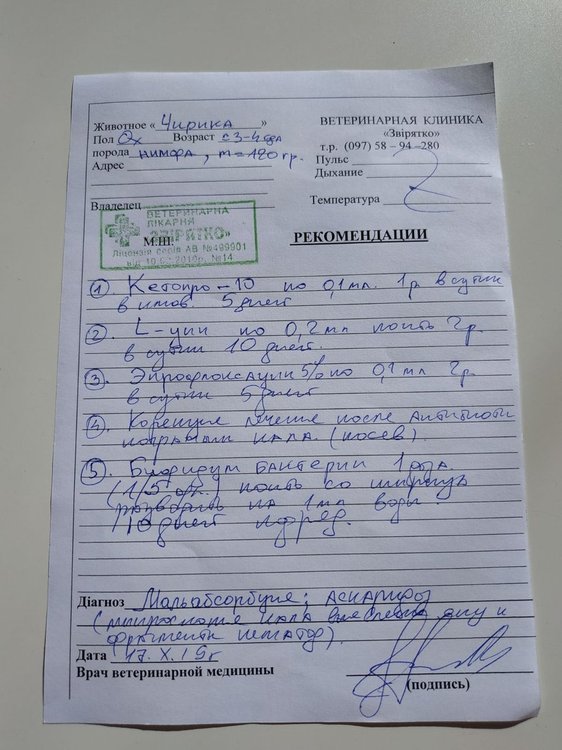 Животное «Чирика»
Пол ♀ Возраст ≈3-4 года
порода нимфа, m=120 гр.
Адрес
Владелец
ВЕТЕРИНАРНАЯ КЛИНИКА
«Звірятко»
т.р. (097) 58 – 94 –280
Пульс
Дыхание
Температура
ВЕТЕРИНАРНА
ЛІКАРНЯ
«ЗВІРЯТКО»
Ліцензія серія АВ №499901
М.Ш.
РЕКОМЕНДАЦИИ
① Кетопро-10 по 0,1 мл. 1р. в сутки
5 дней
② L-цин по 0,2мл поить 2р.
в сутки 10 дней.
③ 5% по 0,1 мл 2р.
в сутки 5 дней
④ лечение после
кала (посев).
⑤ Бифидум бактерии 1 доза.
(1/5 поить со шприца
на 1 мл воды
10 дней подряд.
Діагноз Мальабсорбция; аскариды
(микроскопия кала яиц и
фрагменты нематод).
Дата 17. X. 19г
Врач ветеринарной медицины
(подпись)